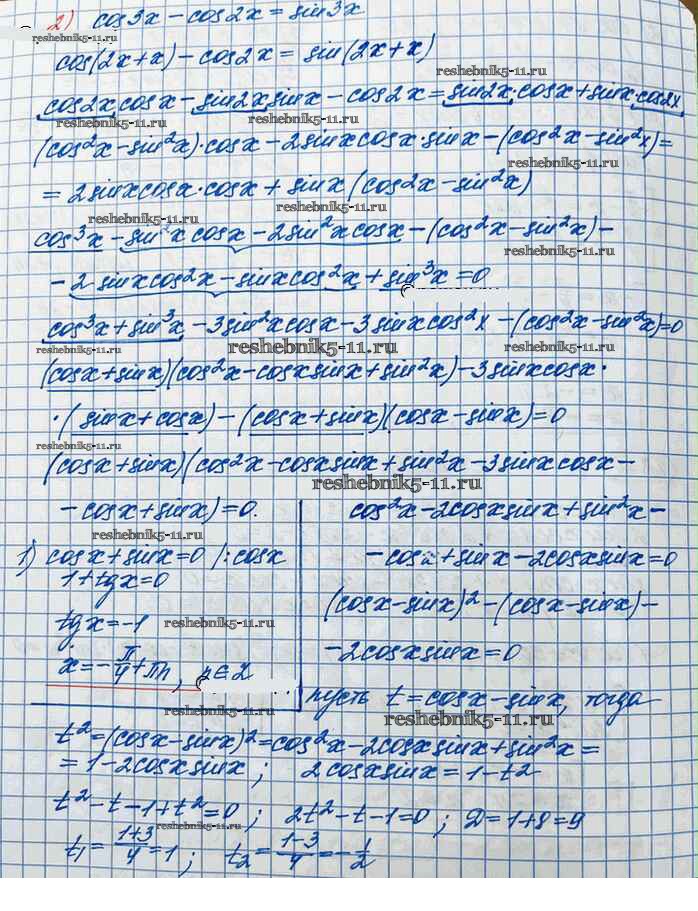 2) cos3x - cos2x = sin3x
reshebnik5-11.ru
cos(2x+x) - cos2x = sin(2x+x)
reshebnik5-11.ru
cos2x cosx - sin2x sinx - cos2x = sin2x·cosx + sinx·cos2x
reshebnik5-11.ru
(cos²x - sin²x)·cosx - 2sinxcosx·sinx - (cos²x - sin²x) =
reshebnik5-11.ru
= 2sinxcosx·cosx + sinx(cos2x - sin²x)
reshebnik5-11.ru reshebnik5-11.ru
cos³x - sin²x cosx - 2sin²xcosx - (cos²x - sin²x) -
reshebnik5-11.ru
- 2 sinxcos²x - sinxcos²x + sin³x = 0
reshebnik5-11.ru
cos³x + sin³x - 3sin²xcosx - 3sinxcos²x - (cos²x - sin²x) = 0
reshebnik5-11.ru reshebnik5-11.ru reshebnik5-11.ru
(cosx + sinx)(cos²x - cosxsinx + sin²x) - 3sinxcosx·
·(sinx + cosx) - (cosx + sinx)(cosx - sinx) = 0
reshebnik5-11.ru
(cosx + sinx)(cos²x - cosxsinx + sin²x - 3sinxcosx -
reshebnik5-11.ru
- cosx + sinx) = 0.
reshebnik5-11.ru
1) cosx + sinx = 0 /:cosx
1 + tgx = 0
tgx = -1
reshebnik5-11.ru
x = -π/4 + πn, n∈Z
cos²x - 2cosxsinx + sin²x -
- cosx + sinx - 2cosxsinx = 0
reshebnik5-11.ru
(cosx - sinx)² - (cosx - sinx) -
- 2cosxsinx = 0
reshebnik5-11.ru
пусть t = cosx - sinx, тогда
reshebnik5-11.ru reshebnik5-11.ru
t² = (cosx - sinx)² = cos²x - 2cosxsinx + sin²x =
= 1 - 2cosxsinx ; 2cosxsinx = 1 - t²
reshebnik5-11.ru
t² - t - 1 + t² = 0 ; 2t² - t - 1 = 0 ; D = 1 + 8 = 9
reshebnik5-11.ru reshebnik5-11.ru
t₁ = (1+3)/4 = 1 ; t₂ = (1-3)/4 = -1/2